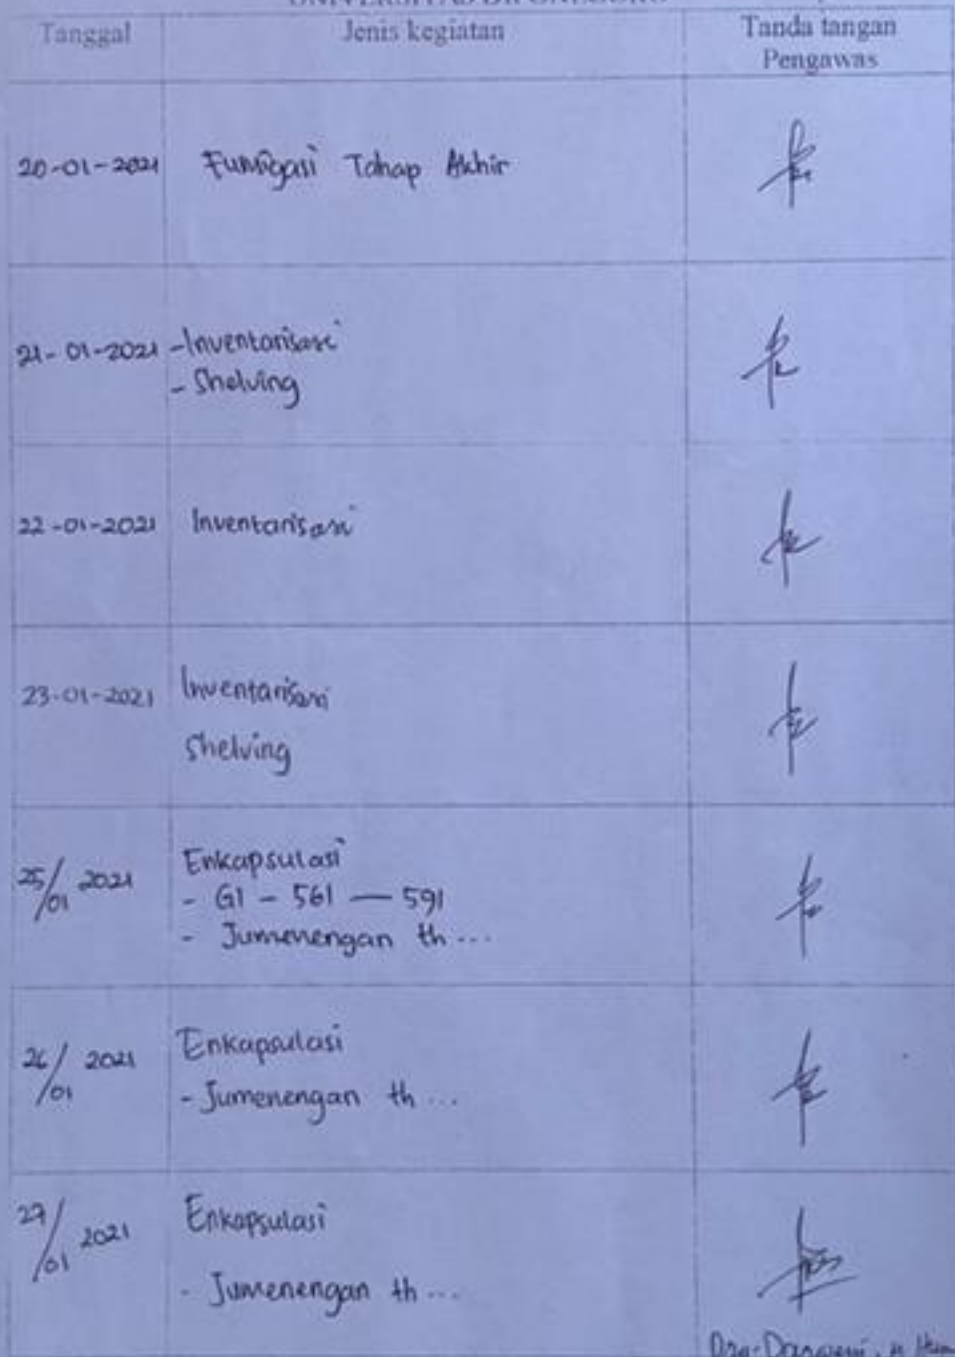 UNIVERSITAS DIPONEGORO
Tanggal Jenis kegiatan Tanda tangan
Pengawas
20-01-2021 Fumigasi Tahap Akhir
21-01-2021 -Inventarisasi
- Shelving
22-01-2021 Inventarisasi
23-01-2021 Inventarisasi
Shelving
25/01 2021 Enkapsulasi
- G1 - 561 — 591
- Jumenengan th ...
26/01 2021 Enkapsulasi
- Jumenengan th ...
27/01 2021 Enkapsulasi
- Jumenengan th ...